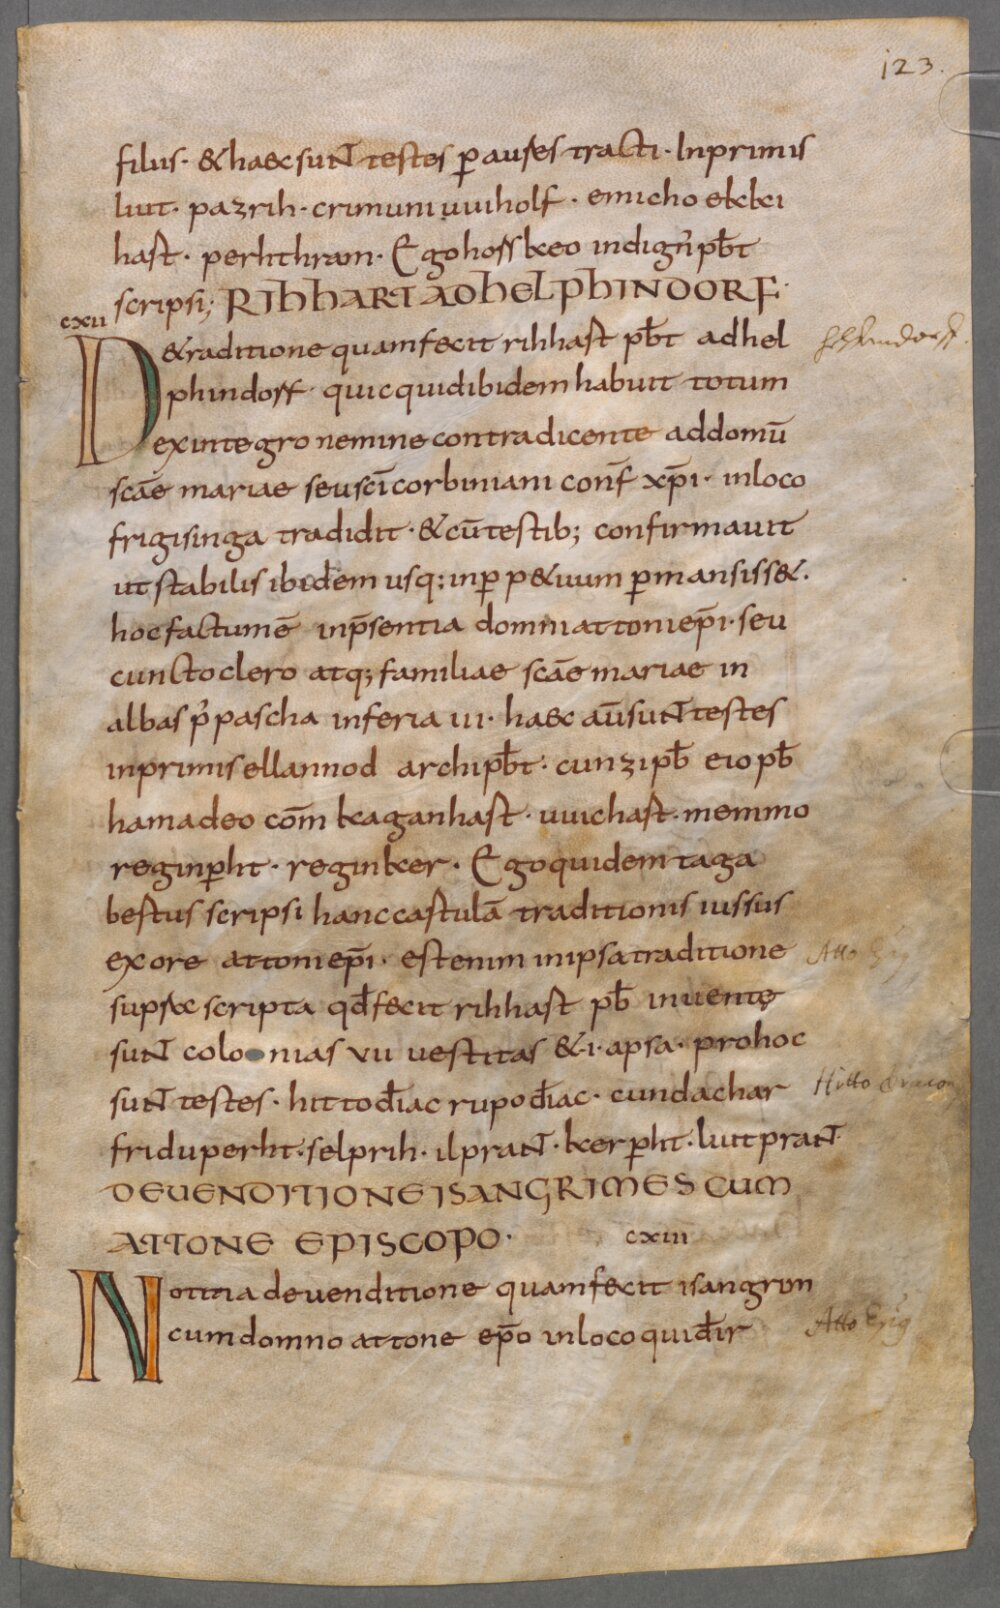 123.
filius· & haec suN̄ testes p̲ aures tracti· Inprimis
liut· pazrih· crimuni uuiholf· emicho ekkei
hart· perhthram· Ego horskeo indigń pƀt
scripsi; RIhhART ADhELPhINDORF·
cxii
D&raditione quam fecit rihhart pƀt adhel
helkindorff.
phindorf· quicquid ibidem habuit totum
ex integro nemine contradicente ad domū
scāe mariae seu scī corbiniani conf̄ xp̄i· inloco
frigisinga tradidit· & cū testib; confirmauit
ut stabilis ibidem usq; inp̲p&uum p̲mansiss&.
hoc factum ē inp̄sentia domni attoni ep̄i· seu
cuncto clero atq; familiae scāe mariae in
albas p' pascha in feria iii· haec aūsuN̄ testes
inprimis ellannod archipƀt· cunzi pƀ eio pƀ
hamadeo cōm kaganhart· uuichart· memmo
reginp̲ht· reginker· Ego quidem taga
bertus scripsi hanc cartulā traditionis iussus
ex ore attoni ep̄i· est enim in ipsa traditione
Atto
supser scripta qđ fecit rihhart pƀ inuentę
suN̄ colonias vii uestitas & i· apsa· pro hoc
suN̄ testes· hitto điac rupo điac· cundachar
Hitto diacon
friduperht· selprih· ilpraN̄· kerp̲ht· liutpraN̄·
DEUENDITIONE ISANGRIMES CUM
ATTONE EPISCOPO· cxiii
Notitia de uenditione quam fecit isangrim
cum domno attone ep̄o inloco qui đir
Atto